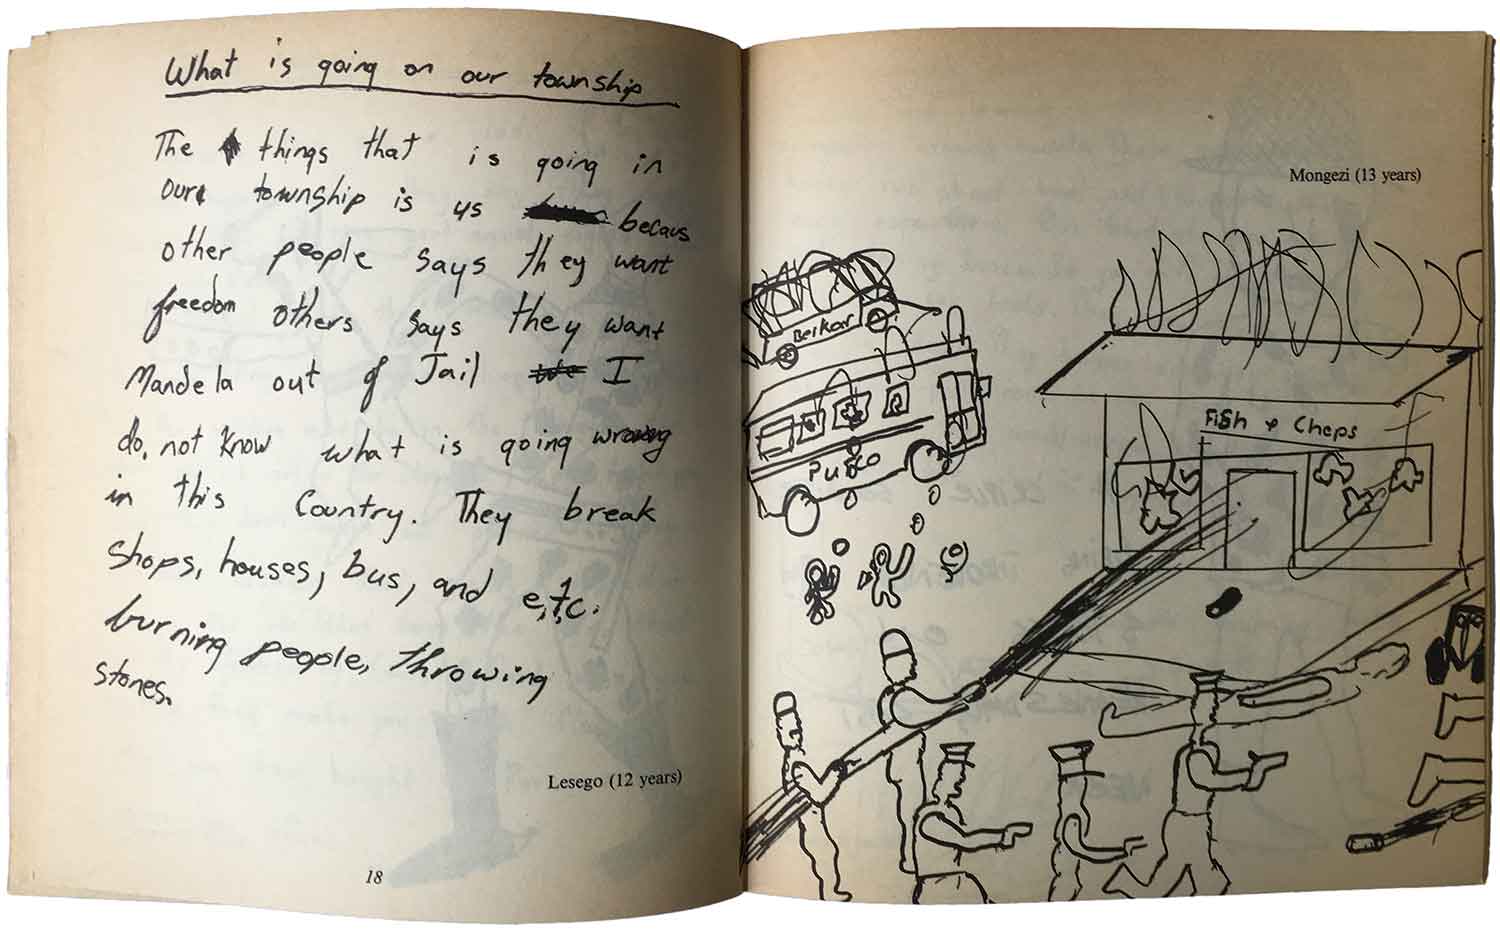 What is going on our township
The things that is going in
our township is us becaus
other people says they want
freedom others says they want
Mandela out of Jail I
do, not know what is going wrowng
in this Country. They break
shops, houses, bus, and e,t,c.
burning people, throwing
stones.
Lesego (12 years)
18
Mongezi (13 years)
Beikor
Putco
Fish & Cheps